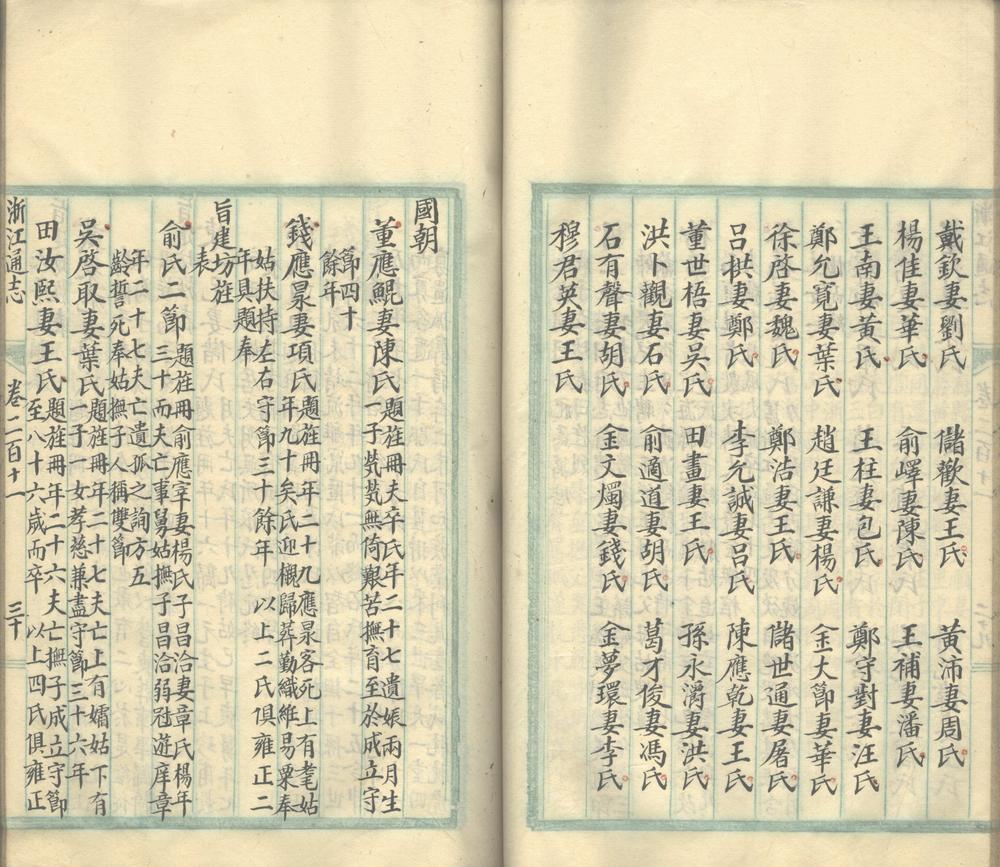 戴欽妻劉氏 儲歡妻王氏 黃沛妻周氏
楊佳妻華氏 俞嶧妻陳氏 王補妻潘氏
王南妻黃氏 王柱妻包氏 鄭守對妻汪氏
鄭允寬妻葉氏 趙廷謙妻楊氏 金大節妻華氏
徐啓妻魏氏 鄭浩妻王氏 儲世通妻屠氏
呂拱妻鄭氏 李允誠妻呂氏 陳應乾妻王氏
董世梧妻吳氏 田畫妻王氏 孫永濟妻洪氏
洪卜觀妻石氏 俞適道妻胡氏 葛才俊妻馮氏
石有聲妻胡氏 金文燭妻錢氏 金夢環妻李氏
穆君英妻王氏
國朝
董應鯤妻陳氏題旌冊夫卒氏年二十七遺娠兩月生
子煢煢無倚艱苦撫育至於成立守
節四十
餘年
錢應杲妻項氏題旌冊年二十九應杲客死上有耄姑
年九十矣氏迎櫬歸葬勤織維易粟奉
姑扶持左右守節三十餘年 以上二氏俱雍正二
年具題奉
旨建坊旌
表
俞氏二節題旌冊俞應宰妻楊氏子昌治妻章氏楊年
三十而夫亡事舅姑撫子昌治弱冠遊庠章
年二十七夫亡遺孤之詢方五
齡誓死奉姑撫子人稱雙節
吳啓取妻葉氏題旌冊年二十七夫亡上有孀姑下有
一子一女孝慈兼盡守節三十六年
田汝熙妻王氏題旌冊年二十六夫亡撫子成立守節
至八十六歲而卒 以上四氏俱雍正
浙江通志 卷二百十一 三十